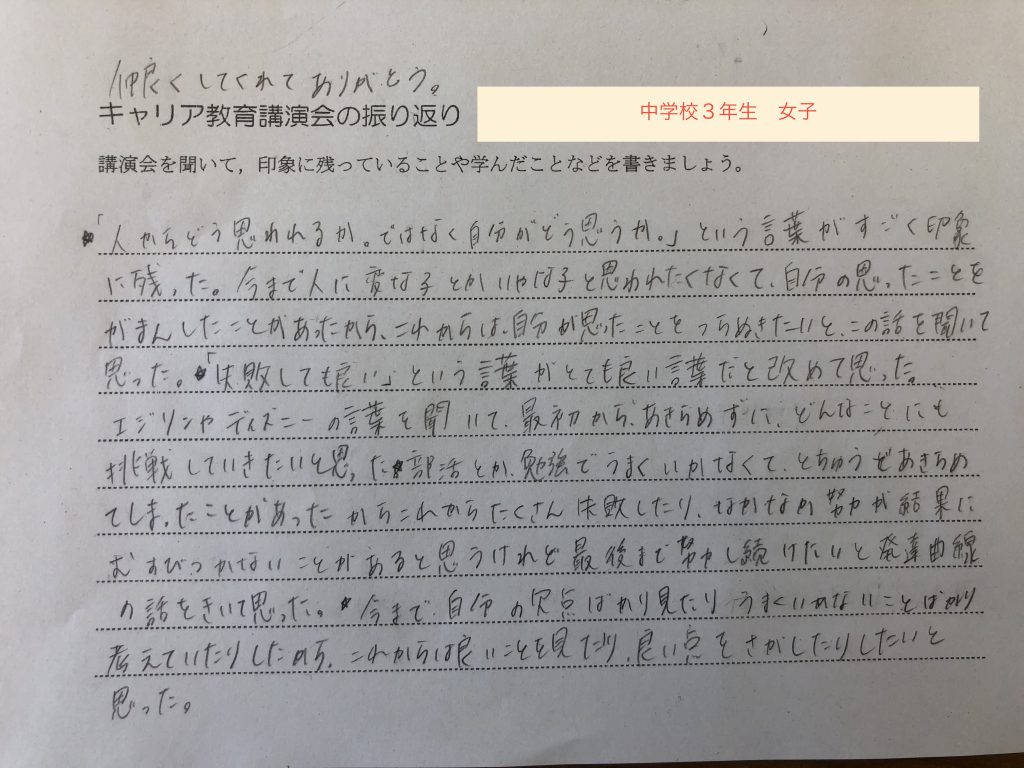 仲良くしてくれてありがとう。
キャリア教育講演会の振り返り
中学校３年生　女子
講演会を聞いて，印象に残っていることや学んだことなどを書きましょう。
★「人からどう思われるか。ではなく自分がどう思うか。」という言葉がすごく印象
に残った。今まで人に変な子とかいやな子と思われたくなくて、自分の思ったことを
がまんしたことがあったから、これからは、自分が思ったことをつらぬきたいと、この話を聞いて
思った。★「失敗しても良い」という言葉がとても良い言葉だと改めて思った。
エジソンやディズニーの言葉を聞いて、最初から、あきらめずに、どんなことにも
挑戦していきたいと思った★部活とか、勉強でうまくいかなくて、とちゅうであきらめ
てしまったことがあったからこれからたくさん失敗したり、なかなか努力が結果に
むすびつかないことがあると思うけれど最後まで努力し続けたいと発達曲線
の話をきいて思った。★今まで自分の欠点ばかり見たりうまくいかないことばかり
考えていたりしたから、これからは良いことを見たり、良い点をさがしたりしたいと
思った。